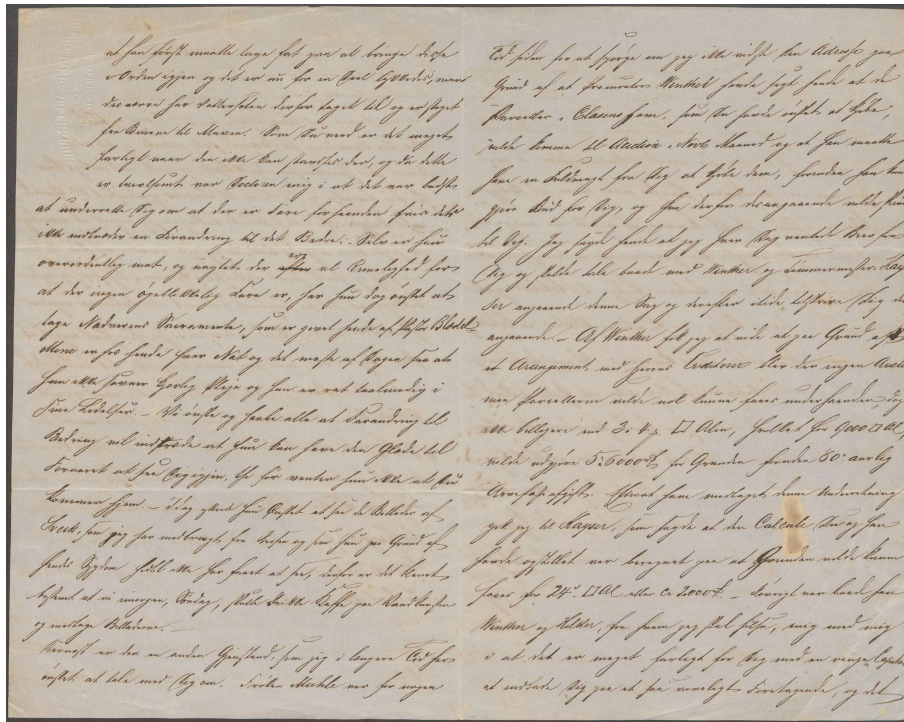 at han først maatte tage fat paa at bringe disse
i Orden igjen og det er nu for en Deel lykkedes, men
desværre har Vattersoten derfor taget til og er steget
fra Benene til Maven. Som Du veed er det meget
farligt naar den ikke kan standses der, og da dette
er tvivlsomt var Doctoren enig i at det var bedst
at underrette Dig om at der er Fare forhaanden hvis det
ikke indtræder en Forandring til det Bedre. – Selv er hun
overordentlig mat, og uagtet der er al Rimelighed for
at der ingen øjeblikkelig Fare er, har hun dog ønsket at
tage Nadverens Sacramente, som er givet hende af Pastor Blædel.
Mine er hos hende hver Nat og det meste af Dagen saa at
hun ikke savner Pleje og hun er ret taalmodig i
sine Lidelser. – Vi ønske og haabe alle at Forandring til
Bedring vil indtræde at hun kan have den Glæde til
Foraaret at see Dig igjen, thi før venter hun ikke at Du
kommer hjem. – Idag yttrede hun Ønsket at see de Billeder af
som jeg har medbragt fra og som hun paa Grund af
hendes Sygdom hidtil ikke har faaet at see, derfor er det
bestemt at vi imorgen, Søndag, skulle drikke Kaffe paa
og medtage Billederne. –
Dernæst er der en anden Gjenstand, som jeg i længere Tid har
ønsket at tale med Dig om. Frøken var for nogen
Tid siden for at spørge om jeg ikke vidste Din Adresse paa
Grund af at Winkler havde sagt hende at de
Parceller i Classens Have, som Du havde ønsket at kjøbe,
vilde komme til Auction i Novb Maaned og at han maatte
have en Fuldmagt fra Dig at kjøbe dem, forinden han kunde
gjøre Bud for Dig, og hun derfor desangaaende vilde skrive
til Dig. Jeg sagde hende at jeg hver Dag ventede Brev fra
Dig og skulde tale baade med Winkler og Tømmermester Kayser
angaaende denne Sag og derefter tilskrive Dig des
angaaende. – Af Winkler fik jeg at vide at paa Grund af
et Arrangement med Creditorer blev der ingen Auction
men Parcellerne vilde nok kunne faaes underhaanden, dog
ikke billigere end 3 a 4 □ Alen, hvilket for 9000 □ Al,
vilde udgjøre 5 a 6000 for Grunden foruden 80 aarlig
Efterat have modtaget denne Underretning
gik jeg til Kayser, som sagde at den Calcule Du og han
havde opstillet var beregnet paa at Grunden vilde kunne
faaes for 24 □ Al eller ca 2000. – Iøvrigt var baade han
Winkler og Hilker, fra hvem jeg skal hilse, enig med mig
i at det er meget farligt for Dig med en ringe Capital
at indlade Dig paa et saa vovelig Foretagende, og det